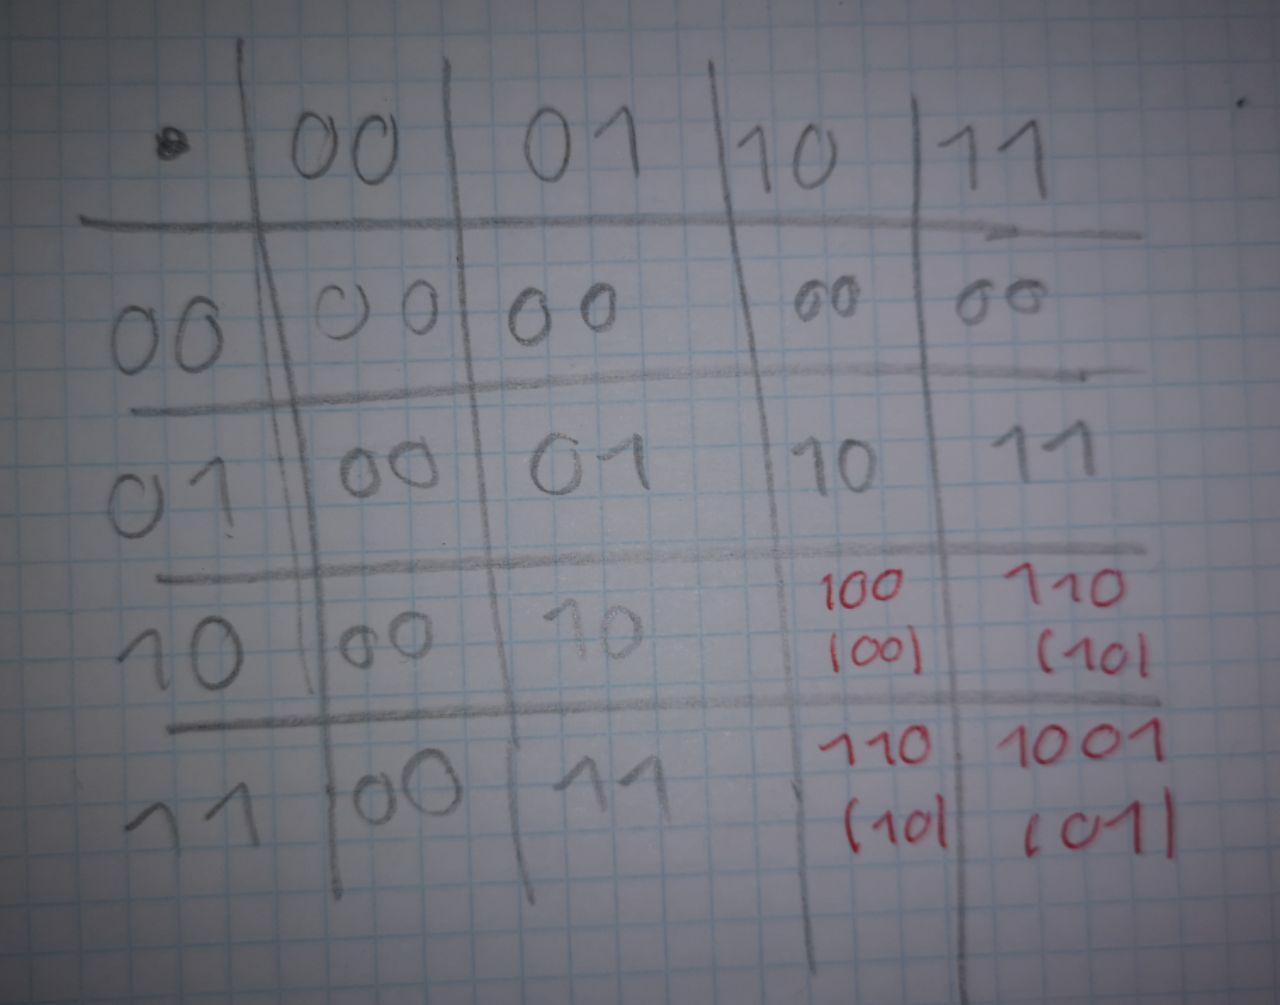 • 00 01 10 11
00 00 00 00 00
01 00 01 10 11
10 00 10 100 110
(00) (10)
11 00 11 110 1001
(10) (01)